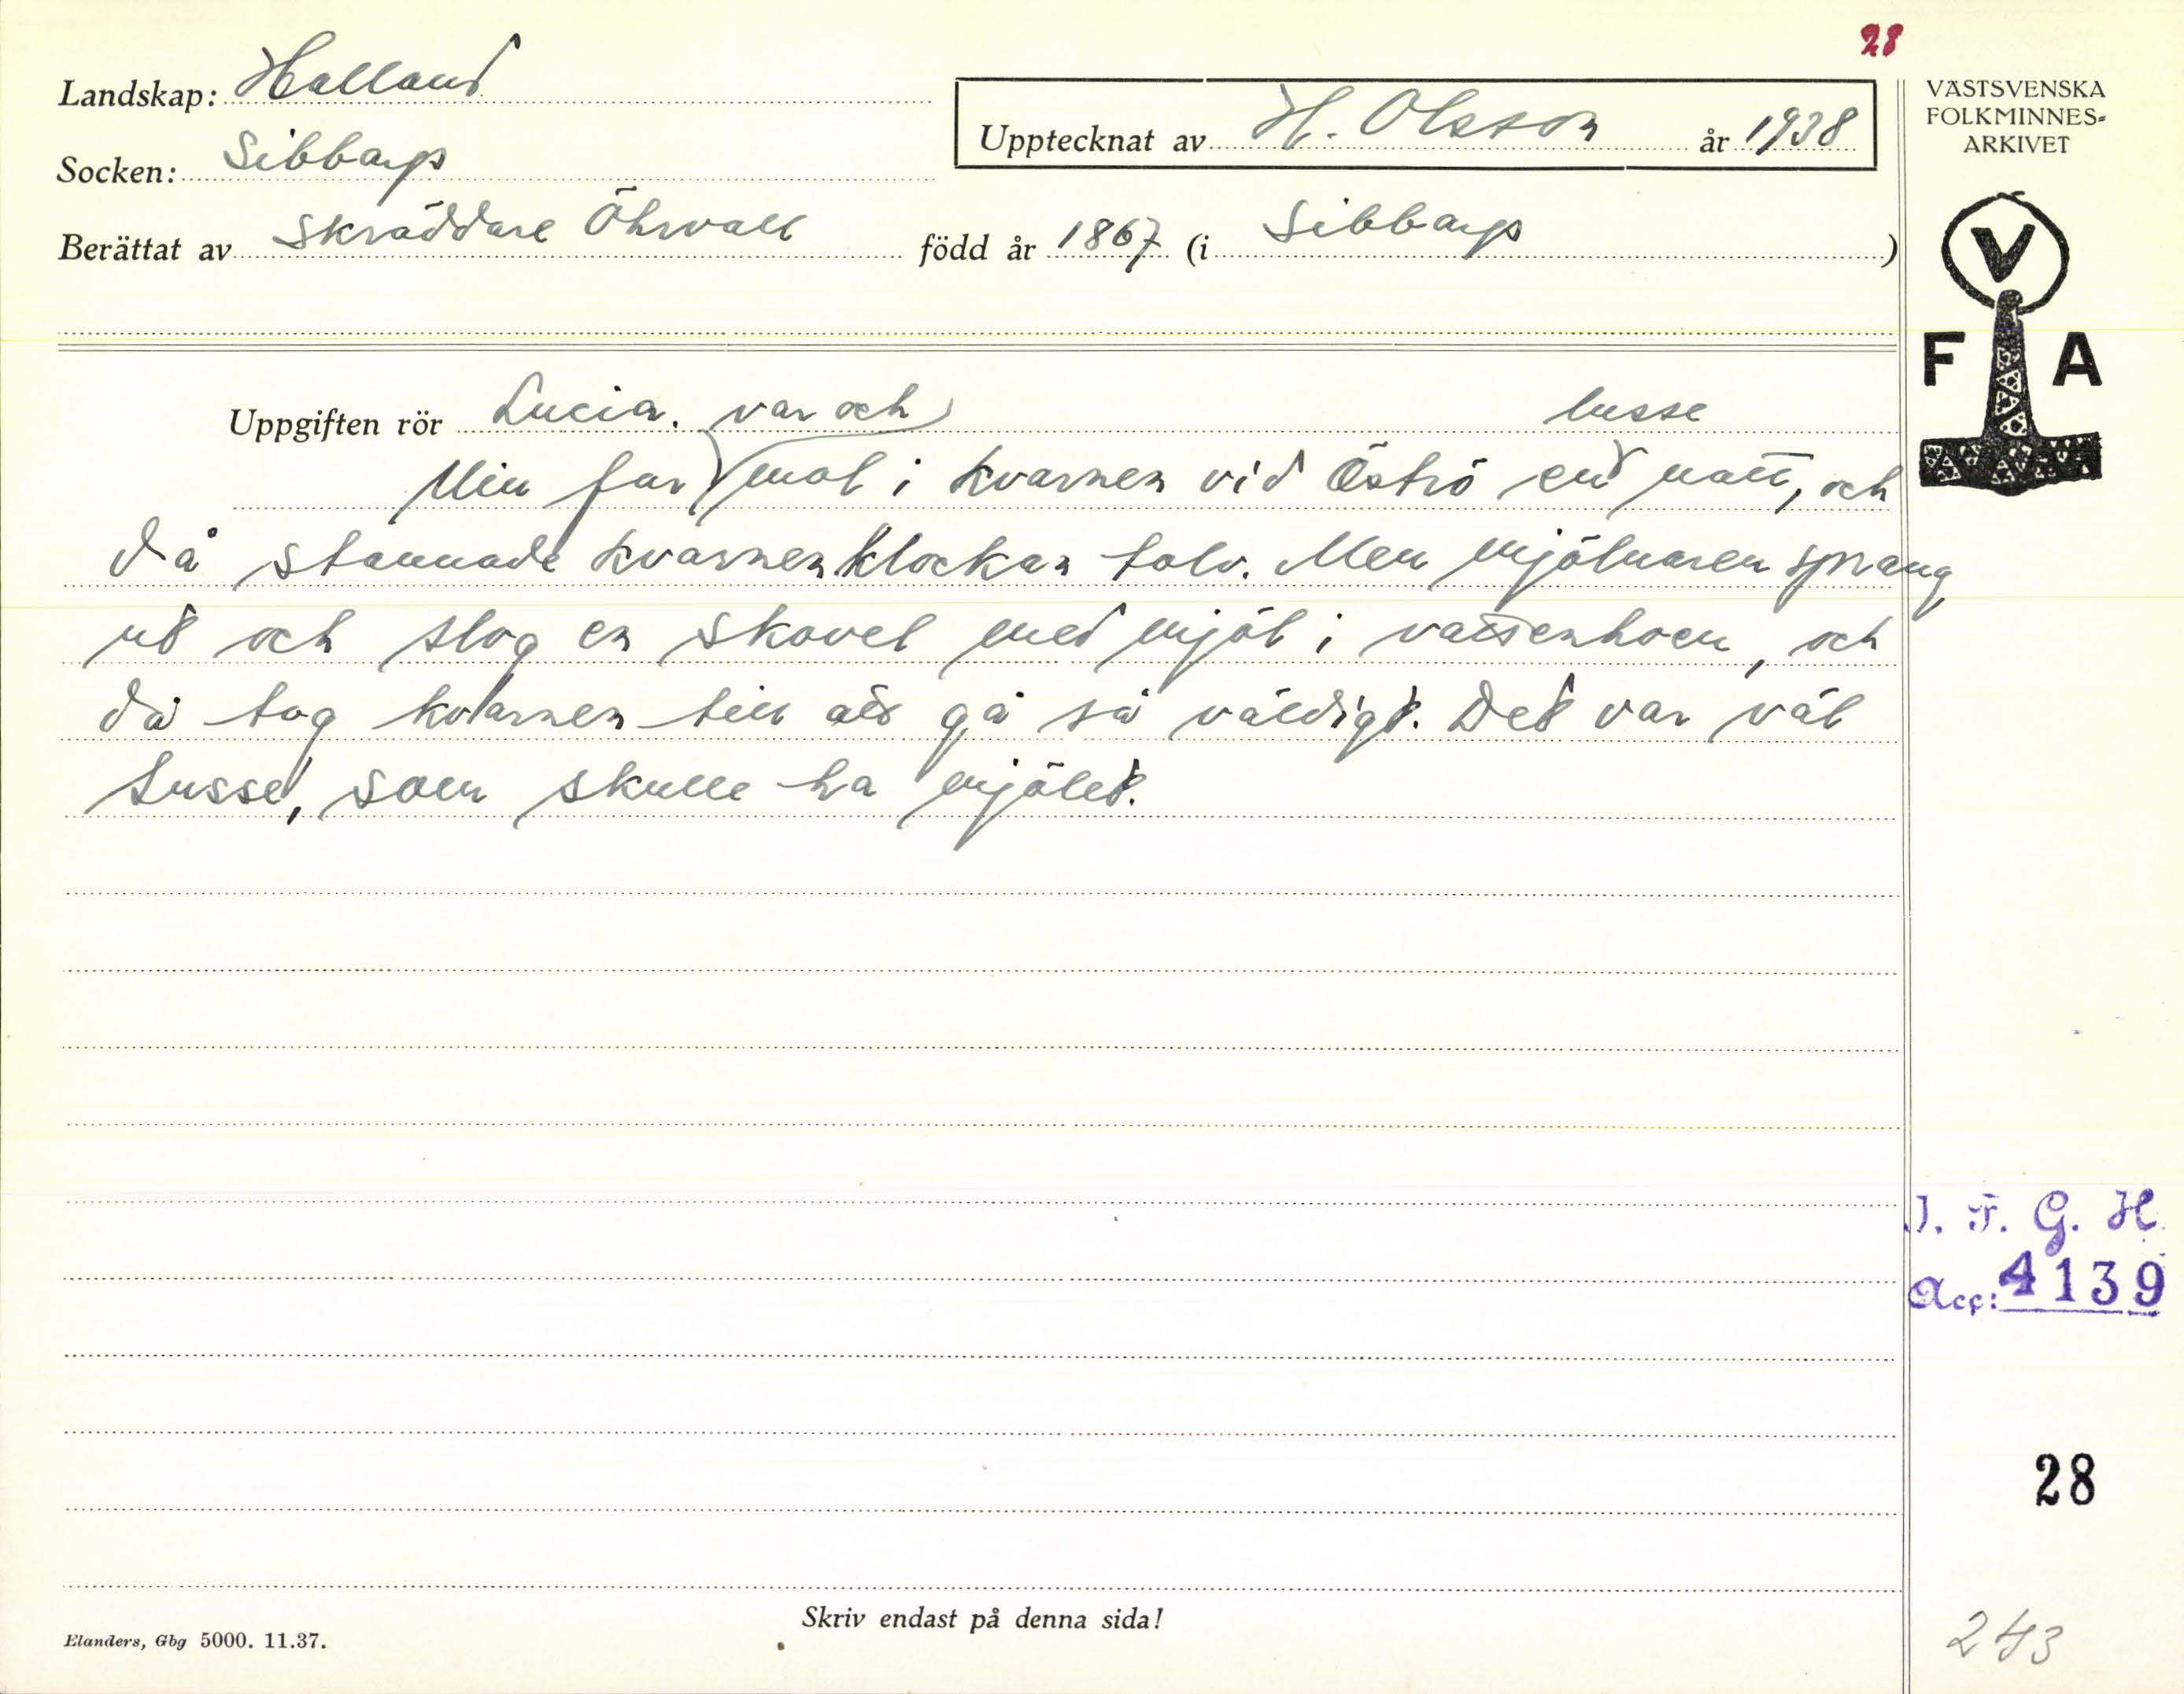 28
Landskap: Halland
Socken: Sibbarp
Upptecknat av H. Olsson år 1938
Berättat av Skräddare Öhrvall född år 1867 (i Sibbarp)
VÄSTSVENSKA
FOLKMINNES-
ARKIVET
V
F A
Uppgiften rör Lucia. var och lusse
Min far mol i kvarnen vid Öströ en natt, och
då stannade kvarnen klockan tolv. Men mjölnaren sprang
ut och slog en skovel med mjöl i vattenhoen, och
då tog kvarnen till att gå så väldigt. Det var väl
Lusse, som skulle ha mjölet.
I. F. G. H.
Acc: 4139
28
Skriv endast på denna sida!
Elanders, Gbg 5000. 11.37.
243